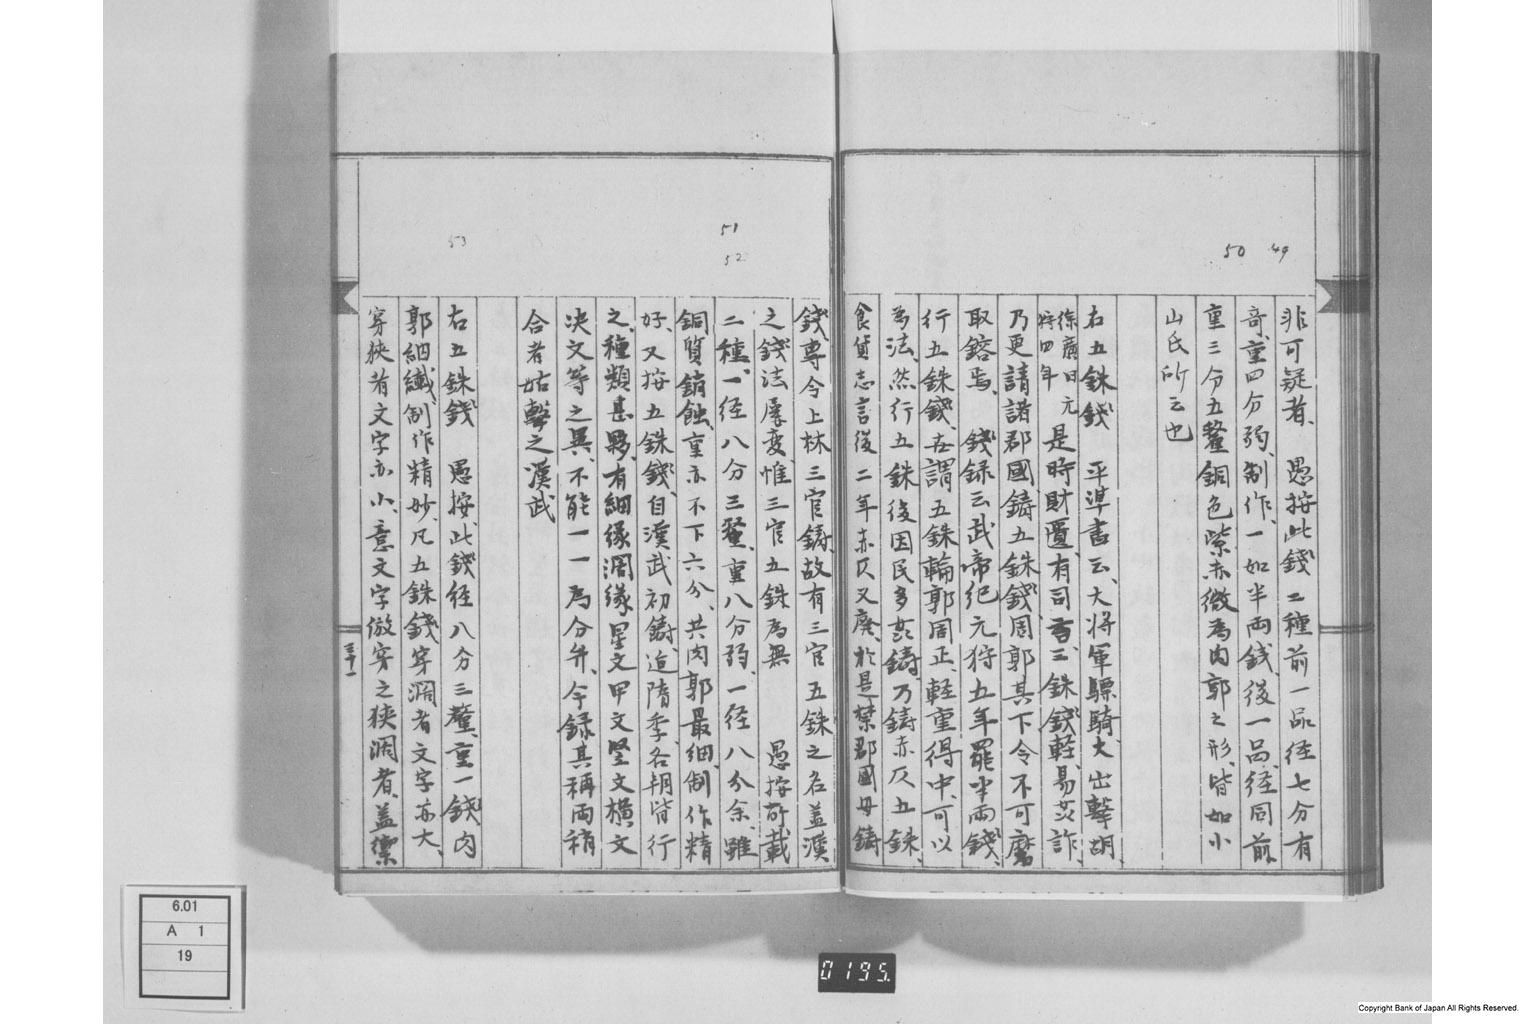 49
50
非可疑者、愚按此錢二種前一品径七分有
奇、重四分弱、制作一如半両錢、後一品径同前
重三分五釐銅色紫赤微為肉郭之形、皆如小
山氏所云也
右五銖錢 平準書云、大将軍驃騎大出擊胡、
徐廣曰元
狩四年
是時財匱、有司言三銖錢軽、易姦詐、
乃更請諸郡國鋳五銖錢周郭其下令不可磨
取鎔焉、 錢録云武帝紀元狩五年罷半両錢、
行五銖錢、在謂五銖輪郭周正、軽重得中、可以
為法、然行五銖後因民多姦鋳、乃鋳赤仄五銖、
食貨志言後二年赤仄又廃、於是禁郡國毋鋳
51
52
53
錢専令上林三官鋳、故有三官五銖之名盖漢
之錢法屡変、惟三官五銖為無 愚按所載
二種、一径八分三釐、重八分弱、一径八分余、雖
銅質銷蝕、重亦不下六分、共肉郭最細、制作精
好、又按五銖錢、自漢武初鋳、迨隋季、各朝皆行
之、種類甚夥、有細縁濶縁星文甲文竪文横文
决文等之異、不能一一為分弁、今録其稱両稍
合者姑繫之漢武
右五銖錢 愚按、此錢径八分三釐、重一錢肉
郭細纖、制作精妙、凡五銖錢、穿濶者文字亦大、
穿狭者文字亦小、意文字倣穿之狭濶者、盖漂
三十一
6.01
A 1
19
0195.
Copyright Bank of Japan All Rights Reserved.